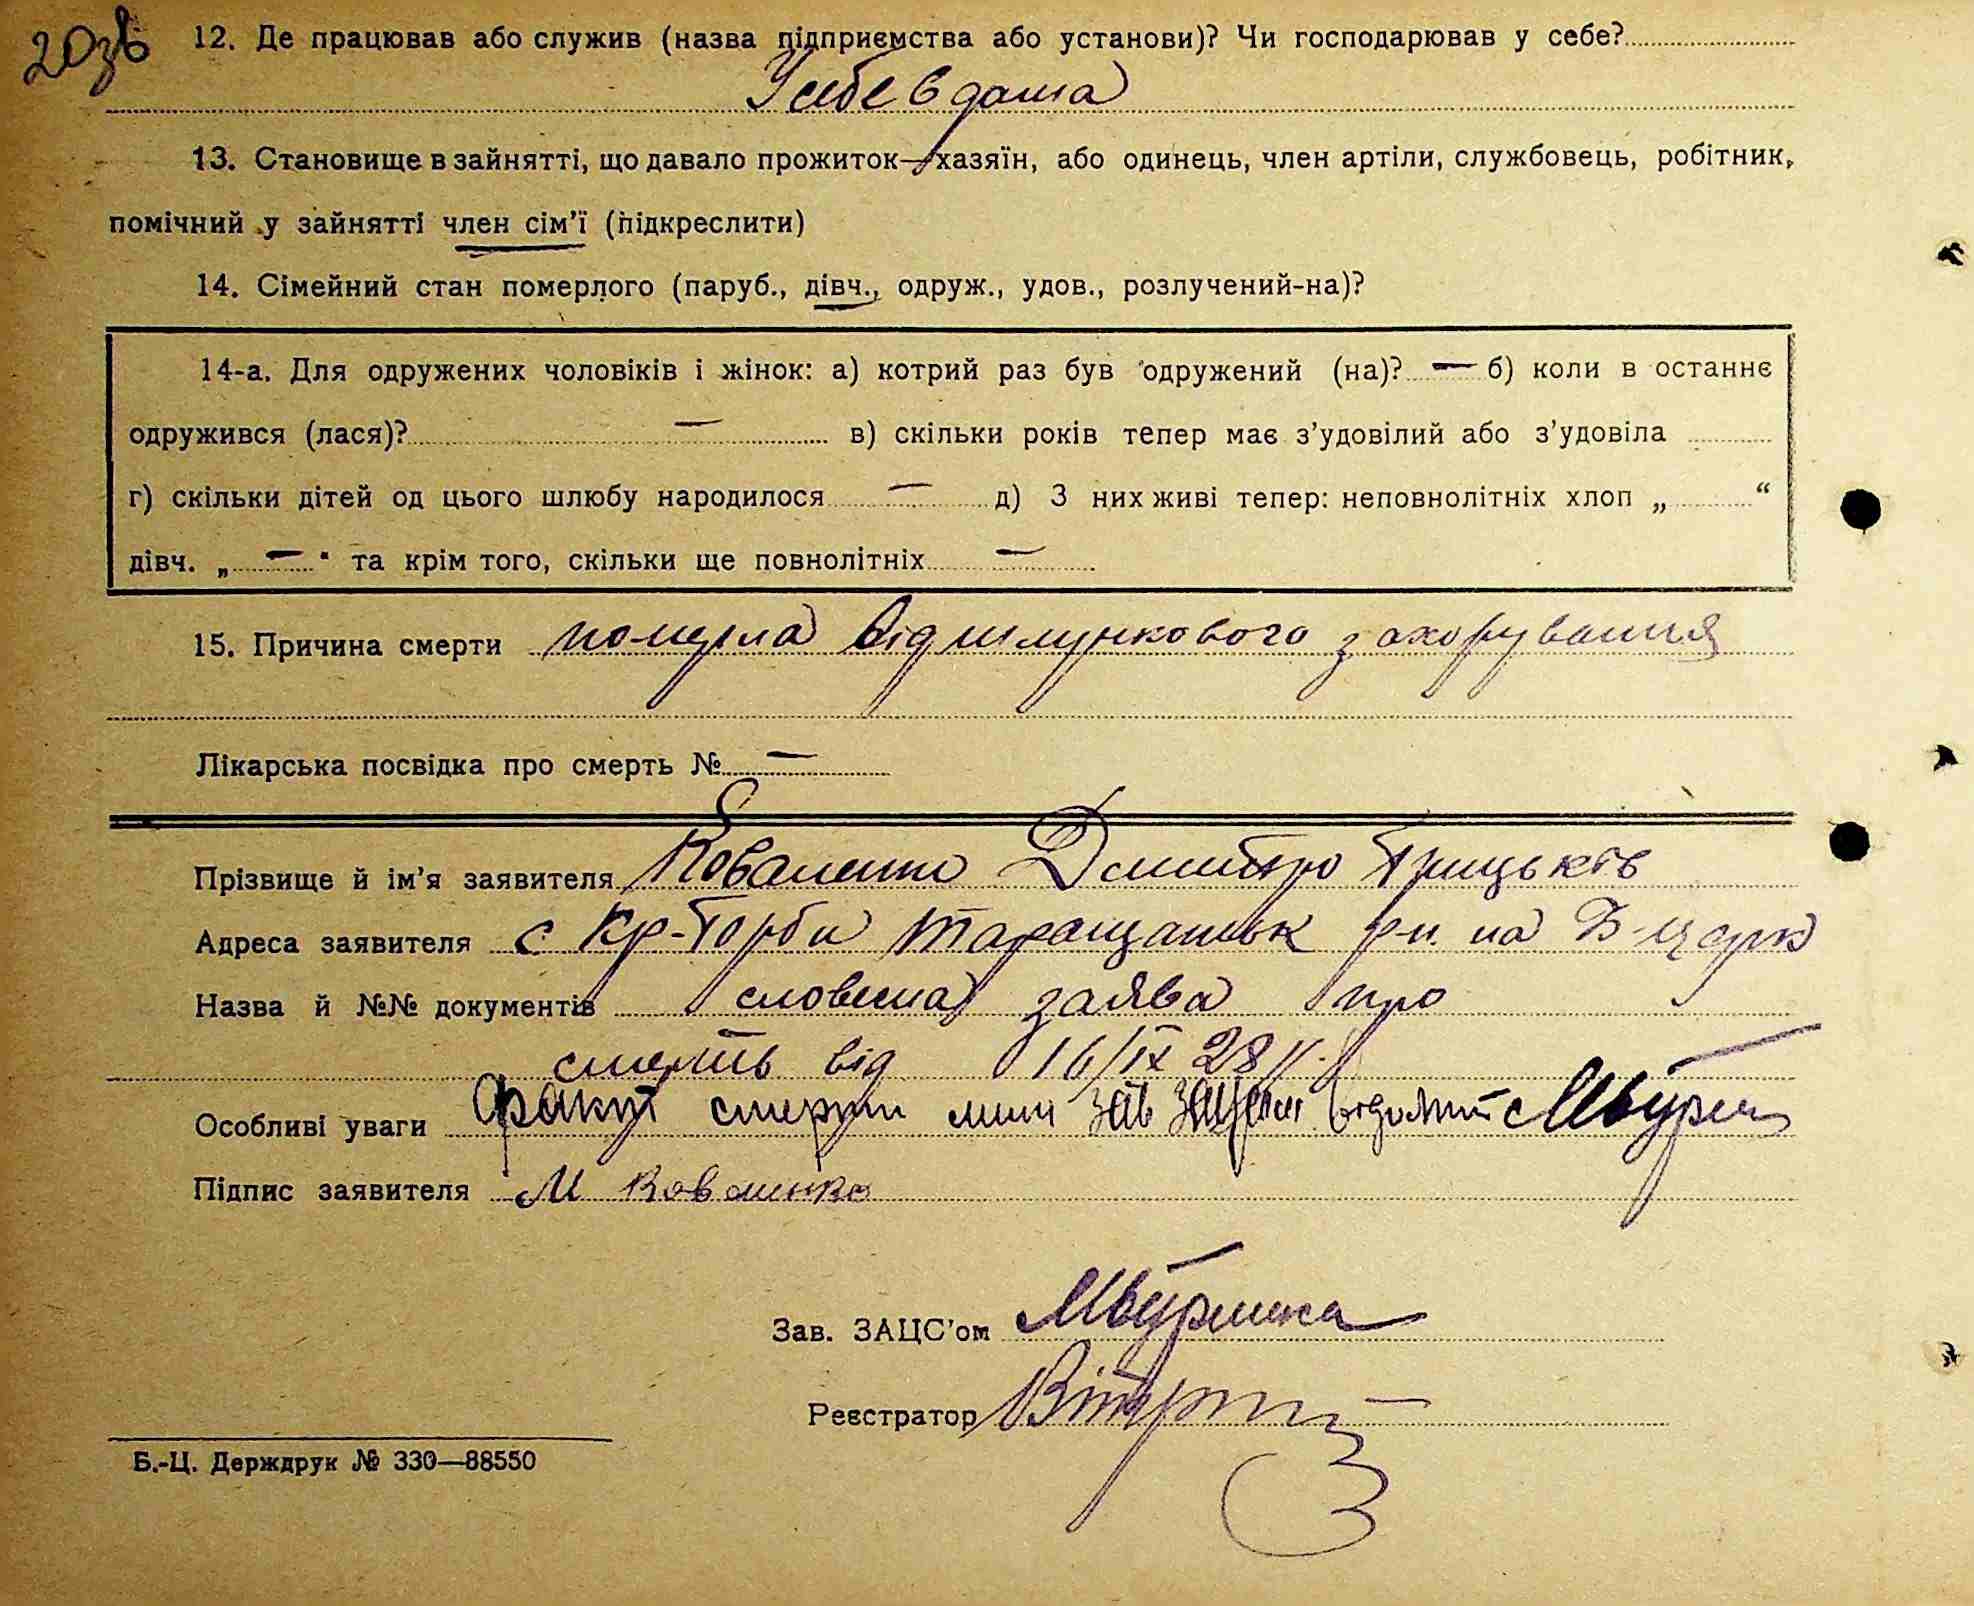 20зв
12. Де працював або служив (назва підприємства або установи)? Чи господарював у себе?
У себе в дома
13. Становище в зайнятті, що давало прожиток—хазяїн, або одинець, член артіли, службовець, робітник,
помічний у зайнятті член сім'ї (підкреслити)
14. Сімейний стан померлого (паруб., дівч., одруж., удов., розлучений-на)?
14-а. Для одружених чоловіків і жінок: а) котрий раз був одружений (на)? — б) коли в останнє
одружився (лася)? — в) скільки років тепер має з'удовілий або з'удовіла
г) скільки дітей од цього шлюбу народилося — д) З них живі тепер: неповнолітніх хлоп „ “
дівч. „ — “ та крім того, скільки ще повнолітніх —
15. Причина смерти померла від шлункового захорування
Лікарська посвідка про смерть № —
Прізвище й ім'я заявителя Коваленко Дмитро Грицьків
Адреса заявителя с Кр-Торби Таращанськ р-н. на Б-Церк
Назва й №№ документів словесна заява про
смерть від 16/IX 28 р.
Особливі уваги Факт смерти мині зав зацсом відомий
Підпис заявителя Коваленко
Зав. ЗАЦС'ом
Реєстратор
Б.-Ц. Держдрук № 330—88550